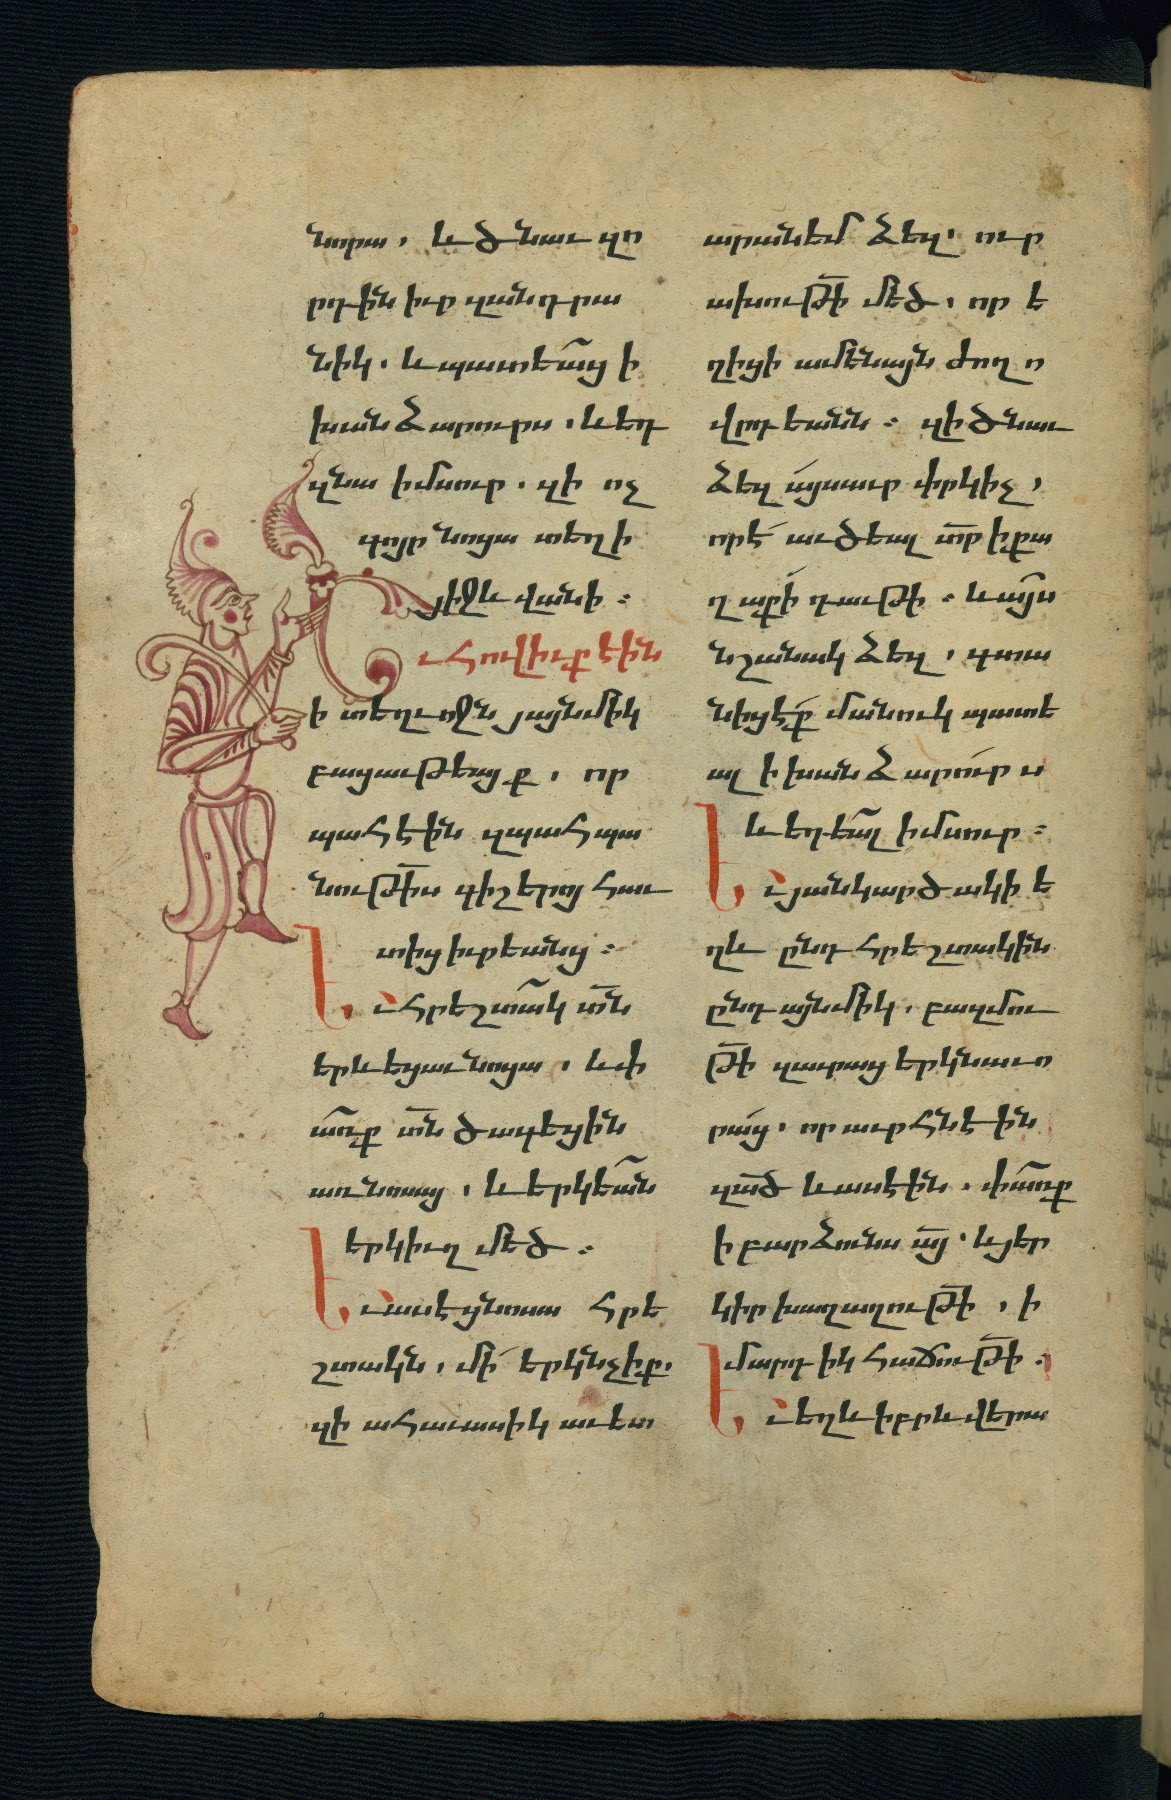 նորա, և ծնաւ զո
րդին իւր զանդրա
նիկ. և պատեա̃ց ի
խանձարուրս, և եդ
զնա իմսուր. զի ոչ
գոյր նոցա տեղի
յիջևվանի։
Եւ հովիւք էին
ի տեղւոջն յայնմիկ
բացաւթեայք, որ
պահէին զպահպա
նութի̃ս գիշերոյ հաւ
տից իւրեանց։
Եւ հրեշտա̃կ տ̃ն
երևեցաւ նոցա, և փ
ա̃ռք տ̃ն ծագեցին
առ նոսայ, և երկեա̃ն
երկիւղ մեծ։
Եւ ասէ ցնոսա հրե
շտակն, մի՛ երկնչիք.
զի ահաւասիկ աւետ
արանեմ ձեզ. ուր
ախութի̃ մեծ, որ ե
ղիցի ամենայն ժողո
վրդեանն։ զի ծնաւ
ձեզ այսաւր փրկիչ,
որ է՛ աւծեալ տ̃ր ի քա
ղաքի՛ դաւթի։ և այս
նշանակ ձեզ, գտա
նիցէք մանուկ պատե
ալ ի խանձարուրս
և եդեա̃լ իմսուր։
Եւ յանկարծակի ե
ղև ընդ հրեշտակին
ընդ այնմիկ, բազմու
թի̃ զաւրաց երկնաւո
րաց, որ աւրհնէին
զա̃ծ և ասէին. փա̃ռք
ի բարձունս ա̃յ, և յեր
կիր խաղաղութի̃, ի
մարդիկ հաճութի̃։
Եւ եղև իբրև վերա